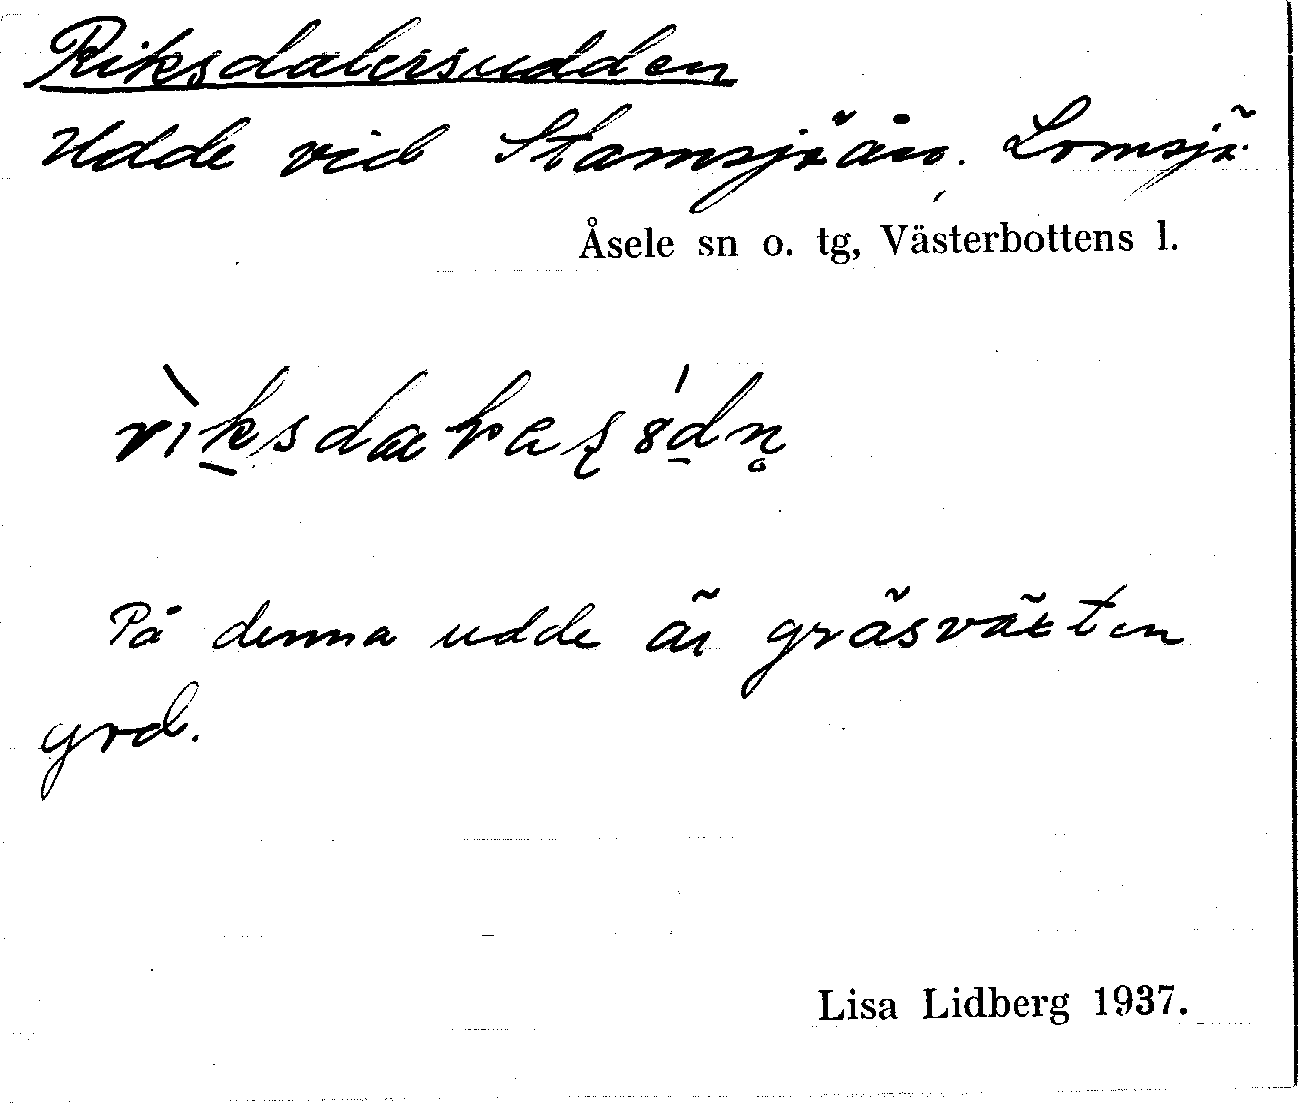 Riksdalersudden
Udde vid Stamsjöån. Lomsjö.
Åsele sn o. tg, Västerbottens l.
På denna udde är gräsväxten
god.
Lisa Lidberg 1937.